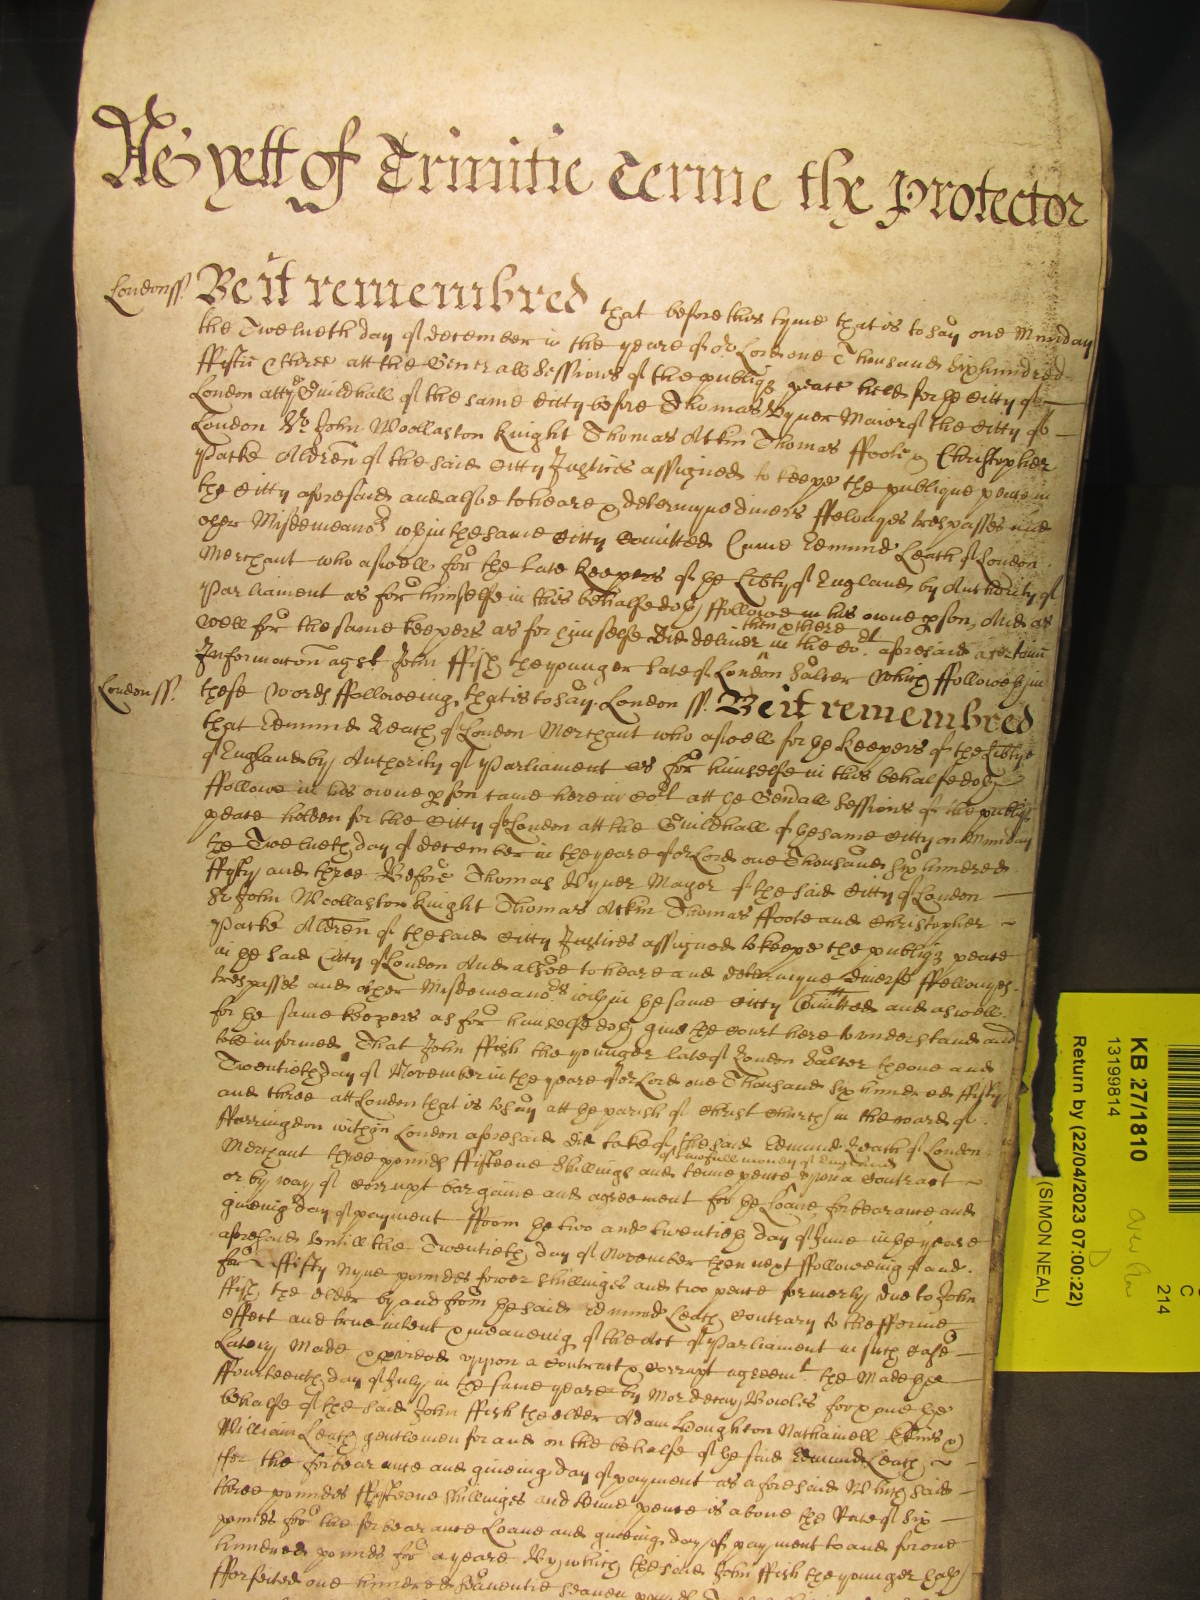 As yett of Trinitie Terme the Protector
London ss. Be it remembred that before this tyme that is to say one Munday
the Twelueth day of december in the yeare of or Lord one Thousand Sixhundred
ffiftie & three att the Generall Sessions of the publiq peace held for the Citty of
London att the Guildhall of the same Citty before Thomas Vyner Maior of the Citty of
London Sr John Woollaston Knight Thomas Atkin Thomas ffoote & Christopher
Packe Aldren of the said Citty Justices assigned to keepe the publique peace in
the Citty aforesaid and alsoe to heare & determyne diuers ffelonyes trespasses and
other Misdemeanors wthin the same Citty Comitted Came Edmund Leach of London
Merchant who aswell for the late Keepers of the Libty of England by Authority of
Parliament as for himselfe in this behalfe doth ffollowe in his owne pson, And as
well for the same keepers as for himselfe Did deliuer then & there in the Cort aforesaid a certaine
Informacon agst John ffish the younger late of London Salter Which ffolloweth in
London ss. these words ffolloweing, that is to say. London ss. Be it remembred
that Edmund Leach of London Merchant who aswell for the Keepers of the Libtye
of England by Authority of Parliament as for himselfe in this behalfe doth
ffollowe in his owne pson came here in Cort att the Genrall Sessions of the publiq
peace holden for the Citty of London att the Guildhall of the same Citty on Munday
the Twelueth day of december in the yeare of or Lord one Thousand Sixhundred
ffifty and three Before Thomas Vyner Mayor of the said Citty of London
Sr John Woollaston Knight Thomas Atkin Thomas ffoote and Christopher
Packe Aldren of the said Citty Justices assigned to keepe the publiq peace
in the said Citty of London And alsoe to heare and determyne diuerse ffellonyes
trespasses and other Misdemeanors wthin the same Citty Comitted and aswell
for the same keepers as for himselfe doth giue the Court here to vnderstand and
bee informed That John ffish the younger late of London Salter the one and
Twentieth day of Nouember in the yeare of or Lord one Thousand Six hundred ffifty
and three att London that is to say att the parish of Christ Church in the ward of
ffarringdon within London aforesaid did take of the said Edmund Leach of London
Merchant three pounds ffifteene Shillings and tenne pence of lawfull money of England vpon a Contract
or by way of corrupt bargaine and agreement for the Loane, forbearance and
giueing day of payment ffrom the two and twentieth day of June in the yeare
aforesaid vntill the Twentieth day of Nouember then next ffolloweing of and
for ffifty nyne pounds fower shillings and two pence formerly due to John
ffish the elder by and from the said Edmund Leach Contrary to the fforme
effect and true intent & meaneing of the Act of Parliament in such case
Lately Made & prvided vppon a Contract & corrupt agreemt the Made the
ffourteenth day of July in the same yeare by Mordecay Bowles for & one the
behalfe of the said John ffish the elder Adam Houghton Nathaniell &
William Leach gentlemen for and on the behalfe of the said Edmund Leach
for the forbearance and giueing day of payment as aforesaid Which said
three pounds ffifteene shillinges and tenne pence is aboue the Rate of six
pounds for the forbearance Loane and giueing day of payment to and for one
hundred pounds for a yeare By which the said John ffish the younger hath
fforfeited one hundred seauentie seauen pounds
KB 27/1810
13199814
Return by (22/04/2023 07:00:22)
(SIMON NEAL)
C
214